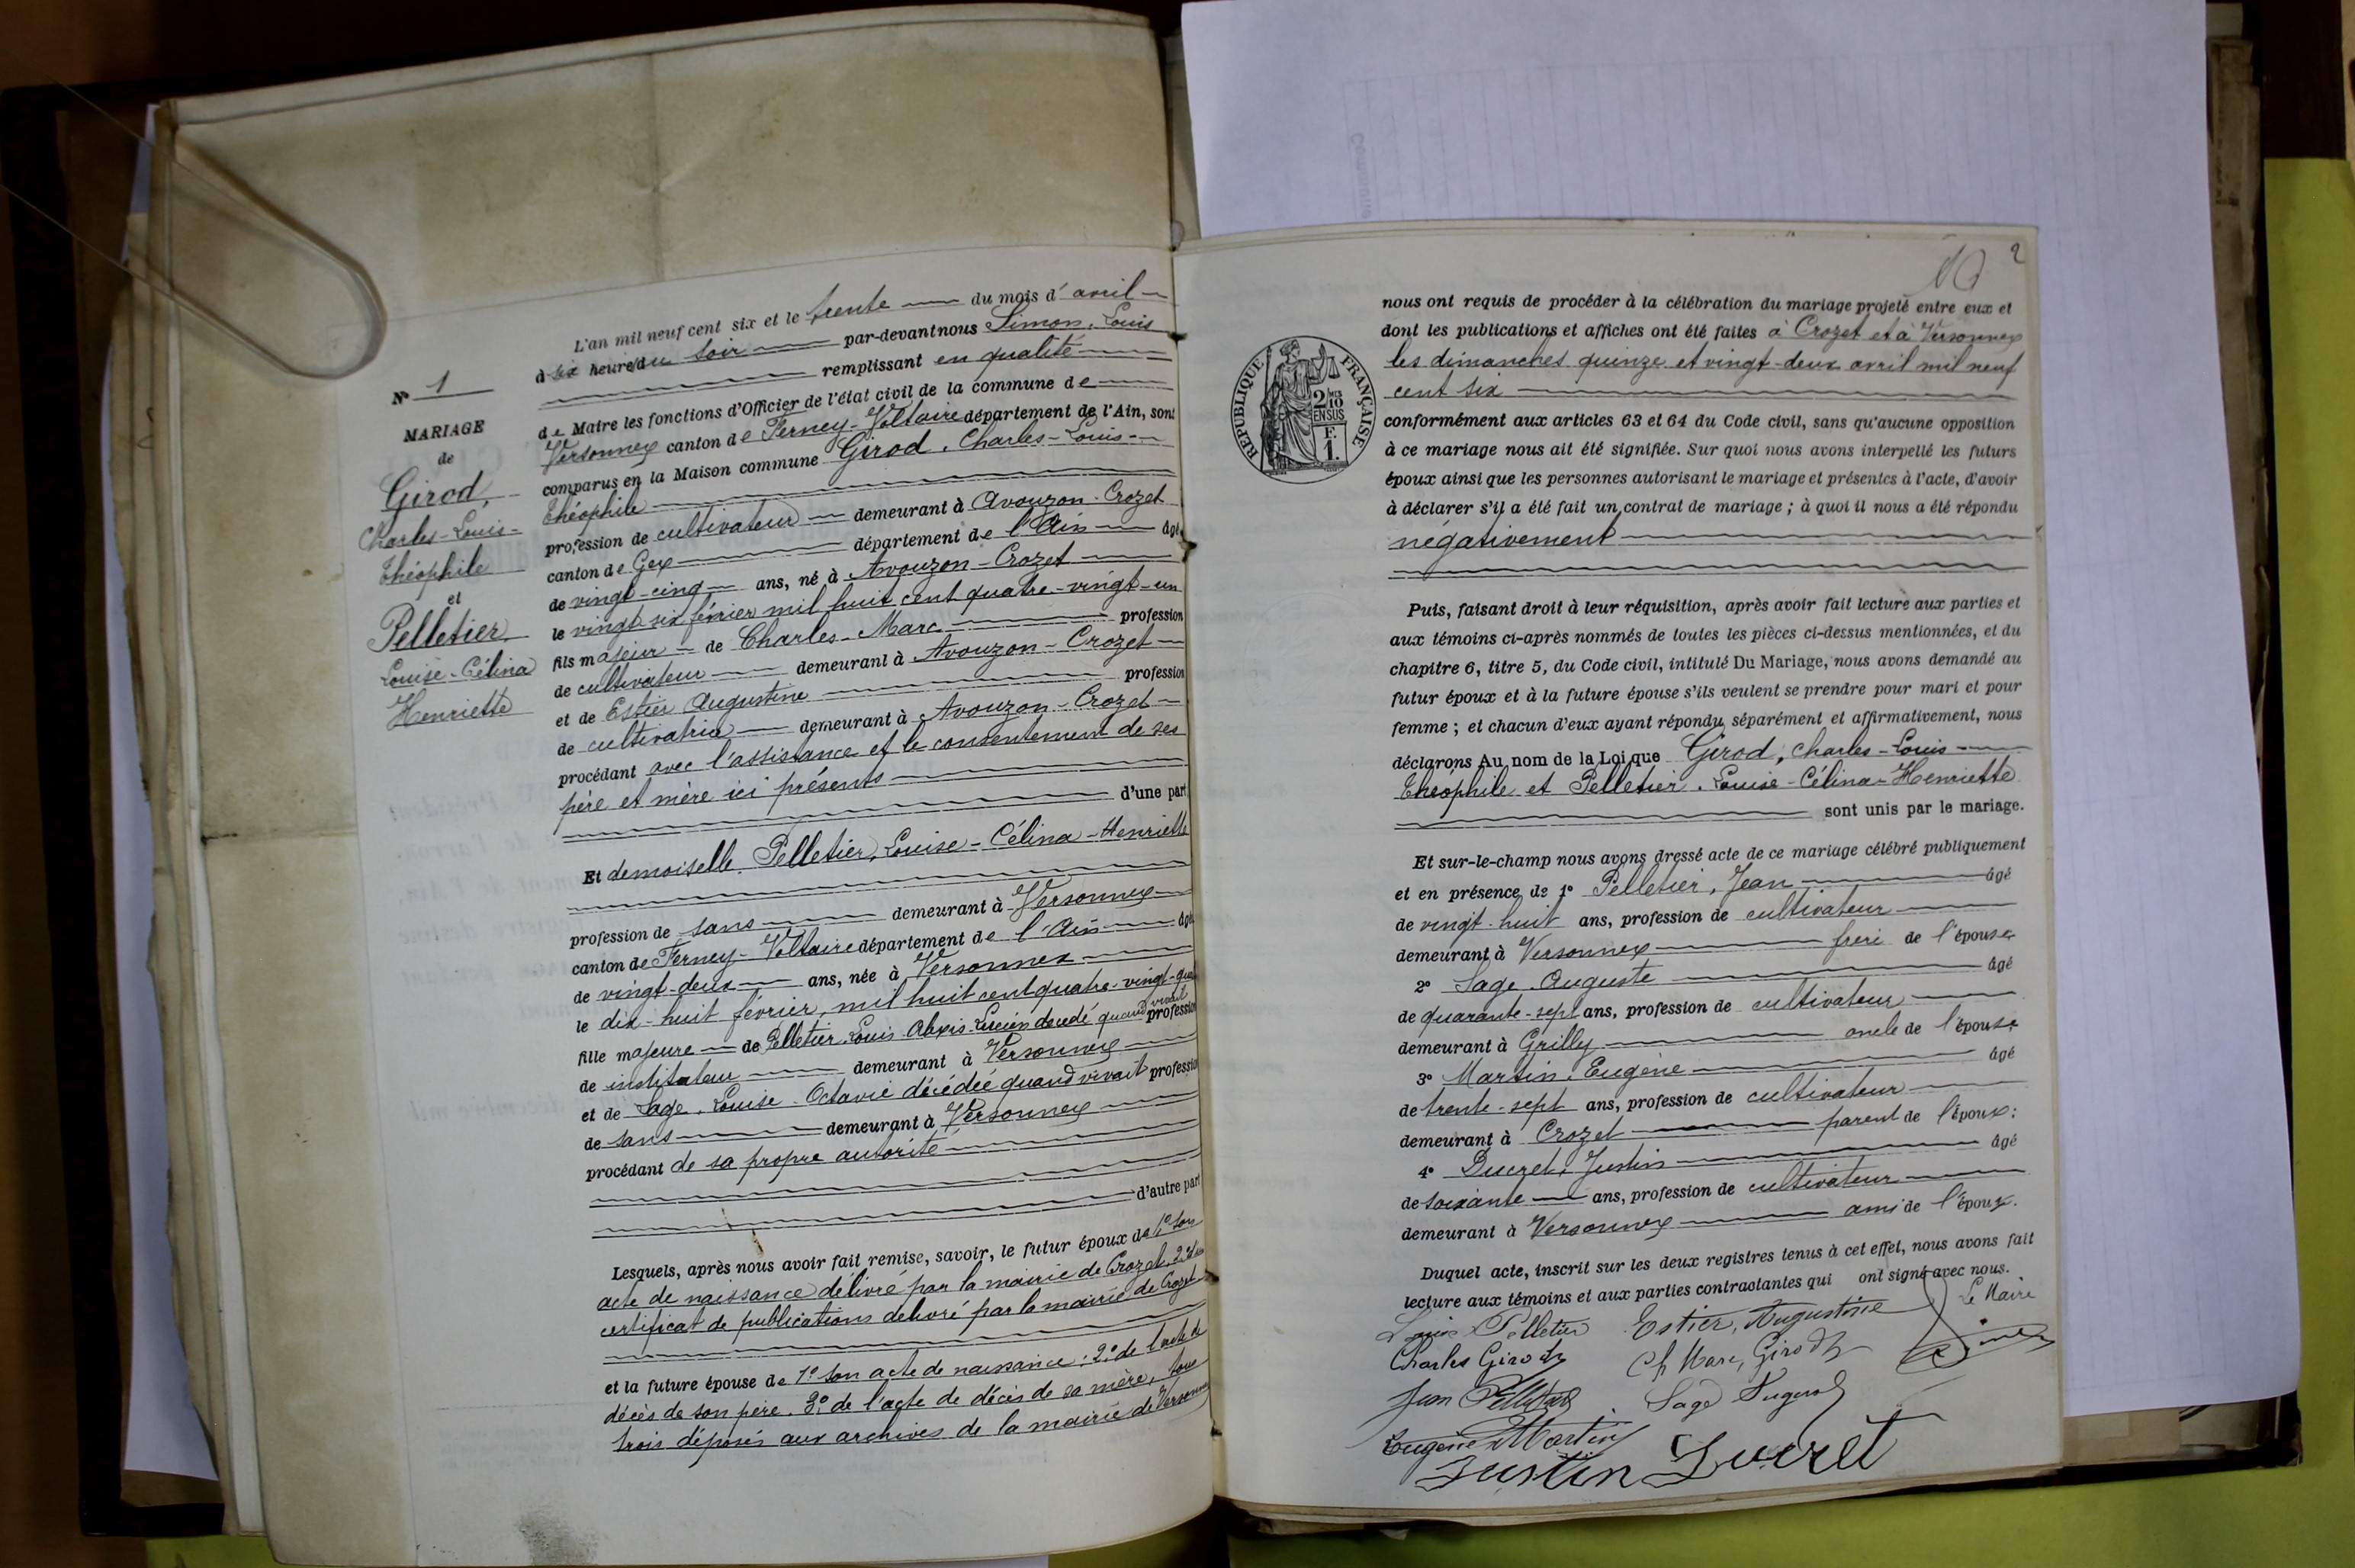 N° 1
MARIAGE
de
Girod,
Charles-Louis-
Théophile
et
Pelletier,
Louise-Célina
Henriette
L'an mil neuf cent six et le trente du mois d'avril
à six heures du soir par-devant nous Simon, Louis
remplissant en qualité
de Maire les fonctions d'Officier de l'état civil de la commune de
Versonnex canton de Ferney-Voltaire département de l'Ain, sont
comparus en la Maison commune Girod, Charles-Louis-
Théophile
profession de cultivateur demeurant à Avouzon-Crozet
canton de Gex département de l'Ain âgé
de vingt-cinq ans, né à Avouzon-Crozet
le vingt six février mil huit cent quatre-vingt-un
fils majeur de Charles-Marc profession
de cultivateur demeurant à Avouzon-Crozet
et de Estier Augustine profession
de cultivatrice demeurant à Avouzon-Crozet
procédant avec l'assistance et le consentement de ses
père et mère ici présents
d'une part
Et demoiselle Pelletier, Louise-Célina-Henriette
profession de sans demeurant à Versonnex
canton de Ferney-Voltaire département de l'Ain âgée
de vingt-deux ans, née à Versonnex
le dix-huit février, mil huit cent quatre-vingt-qua
fille majeure de Pelletier, Louis-Alexis-Lucien décédé quand vivait profession
de instituteur demeurant à Versonnex
et de Sage, Louise-Octavie décédée quand vivait profession
de sans demeurant à Versonnex
procédant de sa propre autorité
d'autre part
Lesquels, après nous avoir fait remise, savoir, le futur époux de 1° son
acte de naissance délivré par la mairie de Crozet, 2°
certificat de publications délivré par la mairie de Crozet
et la future épouse de 1° son acte de naissance; 2° de l'acte de
décès de son père. 3° de l'acte de décès de sa mère, tous
trois déposés aux archives de la mairie de Versonnex
2
RÉPUBLIQUE FRANÇAISE
2 MES
10
EN SUS
F.
1.
nous ont requis de procéder à la célébration du mariage projeté entre eux et
dont les publications et affiches ont été faites à Crozet et à Versonnex
les dimanches quinze et vingt-deux avril mil neuf
cent six
conformément aux articles 63 et 64 du Code civil, sans qu'aucune opposition
à ce mariage nous ait été signifiée. Sur quoi nous avons interpellé les futurs
époux ainsi que les personnes autorisant le mariage et présentes à l'acte, d'avoir
à déclarer s'il a été fait un contrat de mariage; à quoi il nous a été répondu
négativement
Puis, faisant droit à leur réquisition, après avoir fait lecture aux parties et
aux témoins ci-après nommés de toutes les pièces ci-dessus mentionnées, et du
chapitre 6, titre 5, du Code civil, intitulé Du Mariage, nous avons demandé au
futur époux et à la future épouse s'ils veulent se prendre pour mari et pour
femme; et chacun d'eux ayant répondu séparément et affirmativement, nous
déclarons Au nom de la Loi que Girod, Charles-Louis
Théophile et Pelletier, Louise-Célina-Henriette
sont unis par le mariage.
Et sur-le-champ nous avons dressé acte de ce mariage célébré publiquement
et en présence de 1° Pelletier, Jean âgé
de vingt-huit ans, profession de cultivateur
demeurant à Versonnex frère de l'épouse
2° Sage Auguste âgé
de quarante-sept ans, profession de cultivateur
demeurant à Grilly oncle de l'épouse
3° Martin, Eugène âgé
de trente-sept ans, profession de cultivateur
demeurant à Crozet parent de l'époux:
4° Ducret, Justin âgé
de soixante ans, profession de cultivateur
demeurant à Versonnex ami de l'époux.
Duquel acte, inscrit sur les deux registres tenus à cet effet, nous avons fait
lecture aux témoins et aux parties contractantes qui ont signé avec nous.
Louise Pelletier Estier, Augustine Le Maire
Charles Girod Ch Marc, Girod
Jean Pelletier Sage
Eugène Martin
Justin Ducret